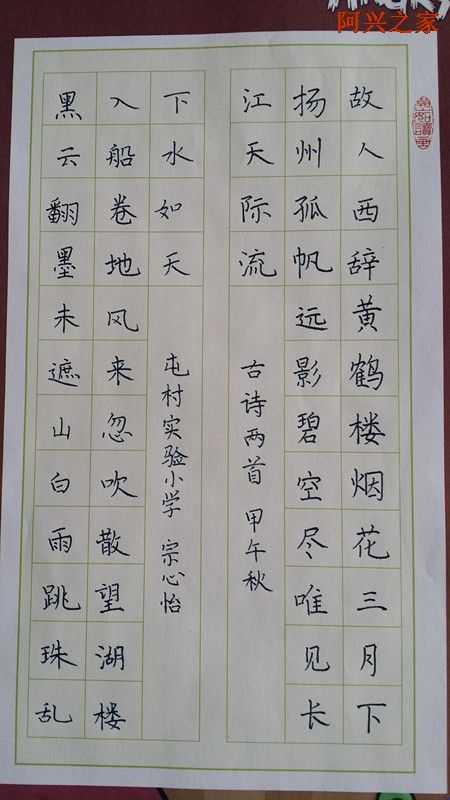 阿兴之家
故人西辞黄鹤楼烟花三月下
扬州孤帆远影碧空尽唯见长
江天际流
古诗两首 甲午秋
黑云翻墨未遮山白雨跳珠乱
入船卷地风来忽吹散望湖楼
下水如天
屯村实验小学 宗心怡